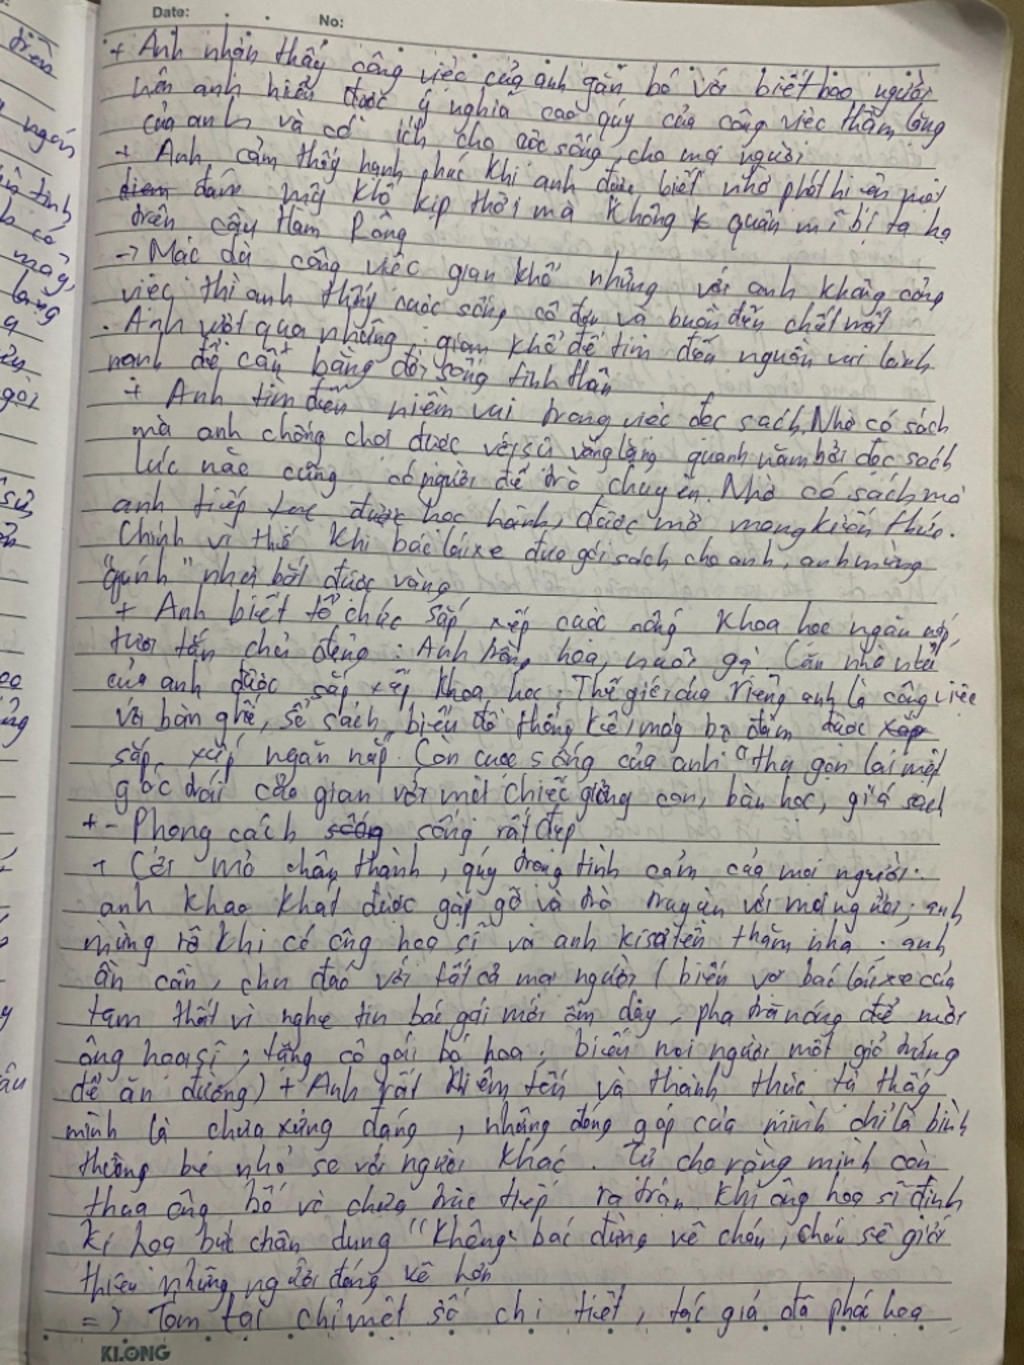 Date: . . No:
+ Anh nhận thấy công việc của anh gắn bó với biết bao người
nên anh hiểu được ý nghĩa cao quý của công việc thầm lặng
của anh và có ích cho cuộc sống, cho mọi người
+ Anh cảm thấy hạnh phúc khi anh được biết nhờ phát hiện một
đám mây khô kịp thời mà không k quân mĩ bị ta hạ
trên cầu Hàm Rồng
-> Mặc dù công việc gian khổ nhưng với anh không công
việc thì anh thấy cuộc sống cô đơn và buồn đến chết mất
. Anh vượt qua những gian khổ để tìm đến nguồn vui lành
mạnh để cân bằng đời sống tinh thần
+ Anh tìm đến niềm vui trong việc đọc sách. Nhờ có sách
mà anh chống chọi được với sự vắng lặng quanh năm bởi đọc sách
lúc nào cũng có người để trò chuyện. Nhờ có sách mà
anh tiếp tục được học hành, được mở mang kiến thức.
Chính vì thế khi bác lái xe đưa gói sách cho anh, anh mừng
"quýnh" như bắt được vàng
+ Anh biết tổ chức sắp xếp cuộc sống khoa học ngăn nắp,
tươi tắn chủ động : Anh trồng hoa, nuôi gà. Căn nhà nhỏ
của anh được sắp xếp khoa học: Thế giới của riêng anh là công việc
Với bàn ghế, sổ sách, biểu đồ thống kê, máy bộ đàm được xắp
sắp xếp ngăn nắp. Còn cuộc sống của anh "thu gọn lại một
góc trái của gian với một chiếc giường con, bàn học, giá sách
+ - Phong cách sống sống rất đẹp
+ Cởi mở chân thành, quý trọng tình cảm của mọi người:
anh khao khát được gặp gỡ và trò truyện với mọi người; anh
mừng rỡ khi có ông hoạ sĩ và anh kĩ sư đến thăm nhà. anh
ân cần, chu đáo với tất cả mọi người (biếu vợ bác lái xe củ
tam thất vì nghe tin bác gái mới ốm dậy, pha trà nóng để mời
ông hoạ sĩ; tặng cô gái bó hoa; biếu mọi người một giỏ trứng
để ăn đường) + Anh rất khiêm tốn và thành thực tự thấy
mình là chưa xứng đáng, những đóng góp của mình chỉ là bình
thường bé nhỏ so với người khác. Tự cho rằng mình còn
thua ông bố vì chưa trực tiếp ra trận. Khi ông hoạ sĩ định
kí hoạ bức chân dung "Không, bác đừng vẽ cháu, cháu sẽ giới
thiệu những người đáng vẽ hơn
=> Tóm tại chỉ một số chi tiết, tác giả đã phác hoạ
KLONG